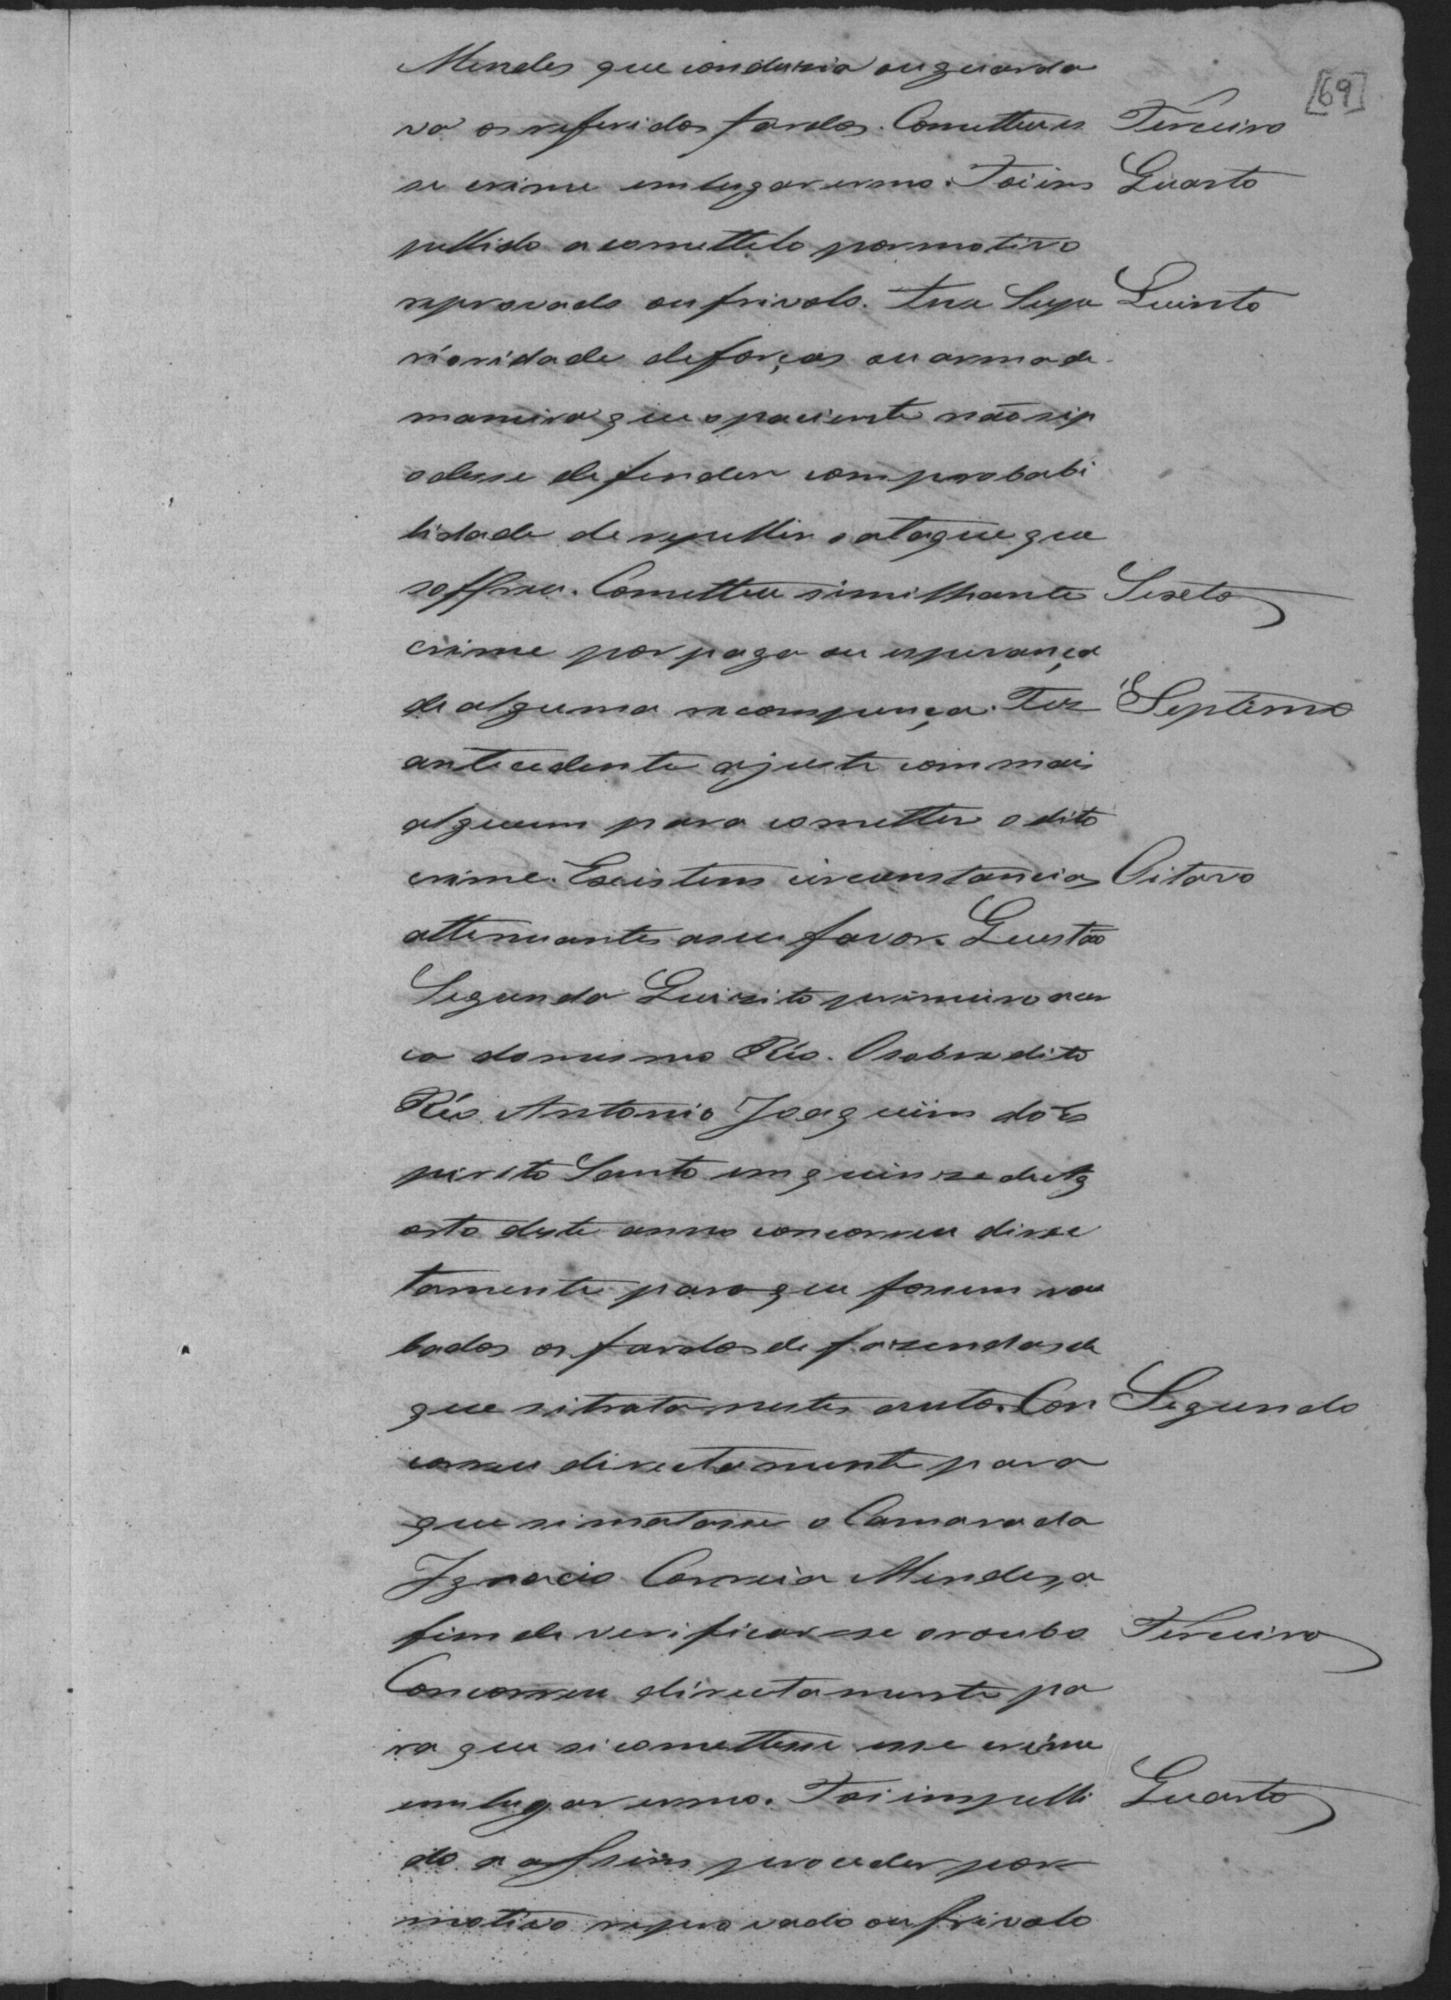 [69]
Mendes que conduzia ou guarda
va os referidos fardos. Cometteu es Terceiro
se crime em lugar ermo. Foi im Quarto
pellido a comettelo por motivo
reprovado ou frivolo. Teve Supe Quinto
rioridade de forças ou arma de
maneira que o paciente não si p
odesse defender com probabi
lidade de repellir o ataque que
soffreu. Cometteu similhante Sexto
crime por paga ou esperança
de alguma recompença. Fez Septimo
antecedente ajuste com mais
alguem para cometter o dito
crime. Existem circunstancias Oitavo
attenuantes a seu favor. Questão
Segunda Quizito primeiro acer
ca do mesmo Réo. O sobredito
Réo Antonio Joaquim do Es
pirito Santo em quinze de Ag
osto deste anno concorreu direc
tamente para que forem rou
bados os fardos de fazendas de
que si trata nestes autos. Con Segundo
correu directamente para
que si matasse o Camarada
Ignacio Correia Mendes, a
fim de verificar-se o roubo Terceiro
Concorreu directamente pa
ra que si comettesse esse crime
em lugar ermo. Foi impelli Quarto
do a assim proceder por
motivo reprovado ou frivolo